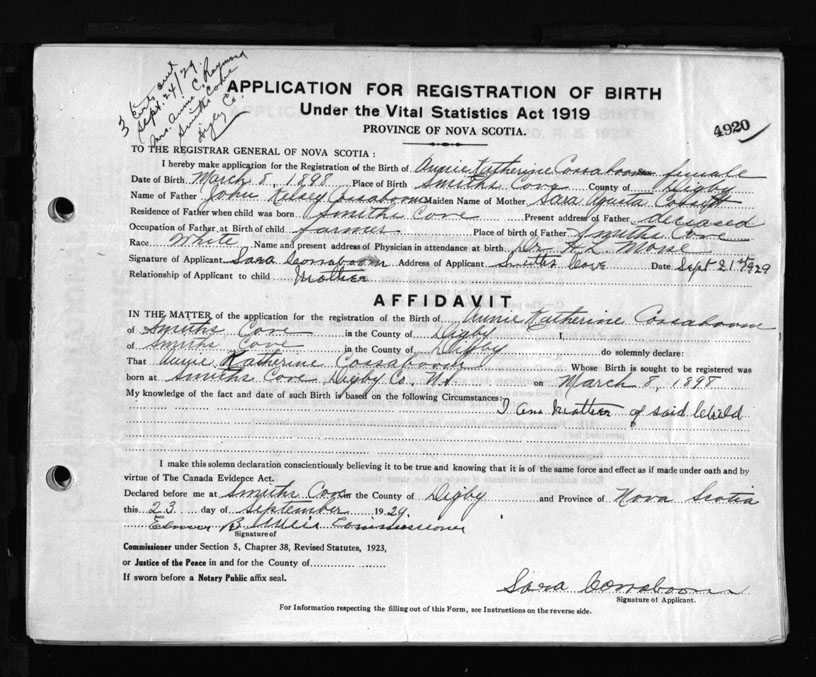 3 certs sent
Sept. 24/29.
Mrs. Annie C. Raymond
Smiths Cove
Digby Co.
APPLICATION FOR REGISTRATION OF BIRTH
Under the Vital Statistics Act 1919
PROVINCE OF NOVA SCOTIA.
4920
TO THE REGISTRAR GENERAL OF NOVA SCOTIA :
I hereby make application for the Registration of the Birth of Annie Katherine Cossaboom Sex female
Date of Birth March 8, 1898 Place of Birth Smiths Cove County of Digby
Name of Father John Kelsey Cossaboom Maiden Name of Mother Sara
Residence of Father when child was born Smiths Cove Present address of Father deceased
Occupation of Father at Birth of child farmer Place of birth of Father Smiths Cove
Race White Name and present address of Physician in attendance at birth Dr. H L. Morse
Signature of Applicant Sara Cossaboom Address of Applicant Smiths Cove Date Sept 21st 1929
Relationship of Applicant to child Mother
AFFIDAVIT
IN THE MATTER of the application for the registration of the Birth of Annie Katherine Cossaboom
of Smiths Cove in the County of Digby I,
of Smiths Cove in the County of Digby do solemnly declare:
That Annie Katherine Cossaboom Whose Birth is sought to be registered was
born at Smiths Cove Digby Co. NS. on March 8, 1898
My knowledge of the fact and date of such Birth is based on the following Circumstances:
I am Mother of said Child
I make this solemn declaration conscientiously believing it to be true and knowing that it is of the same force and effect as if made under oath and by
virtue of The Canada Evidence Act.
Declared before me at Smiths Cove in the County of Digby and Province of Nova Scotia
this 23 day of September 1929.
B Commissioner
Signature of
Commissioner under Section 5, Chapter 38, Revised Statutes, 1923,
or Justice of the Peace in and for the County of
If sworn before a Notary Public affix seal.
Sara Cossaboom
Signature of Applicant.
For Information respecting the filling out of this Form, see Instructions on the reverse side.